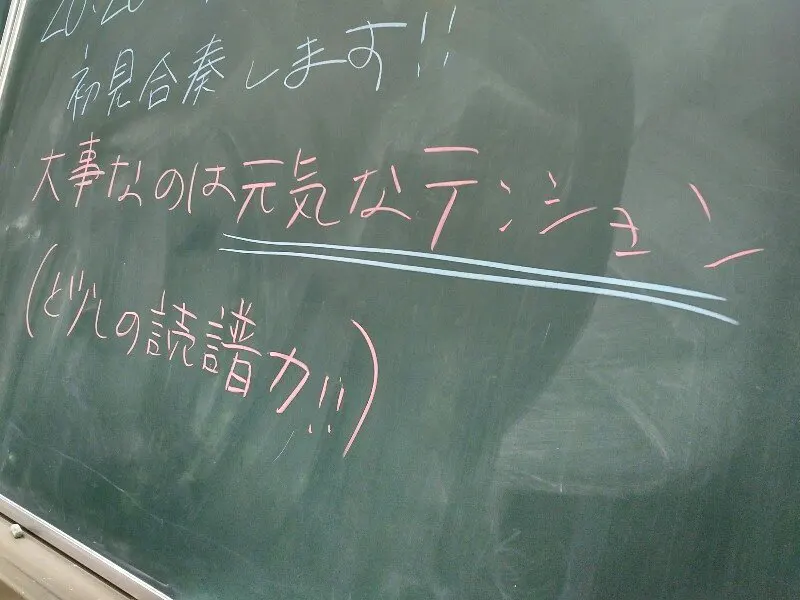 初見合奏します!!
大事なのは元気なテンション
(と少しの読譜力!!)